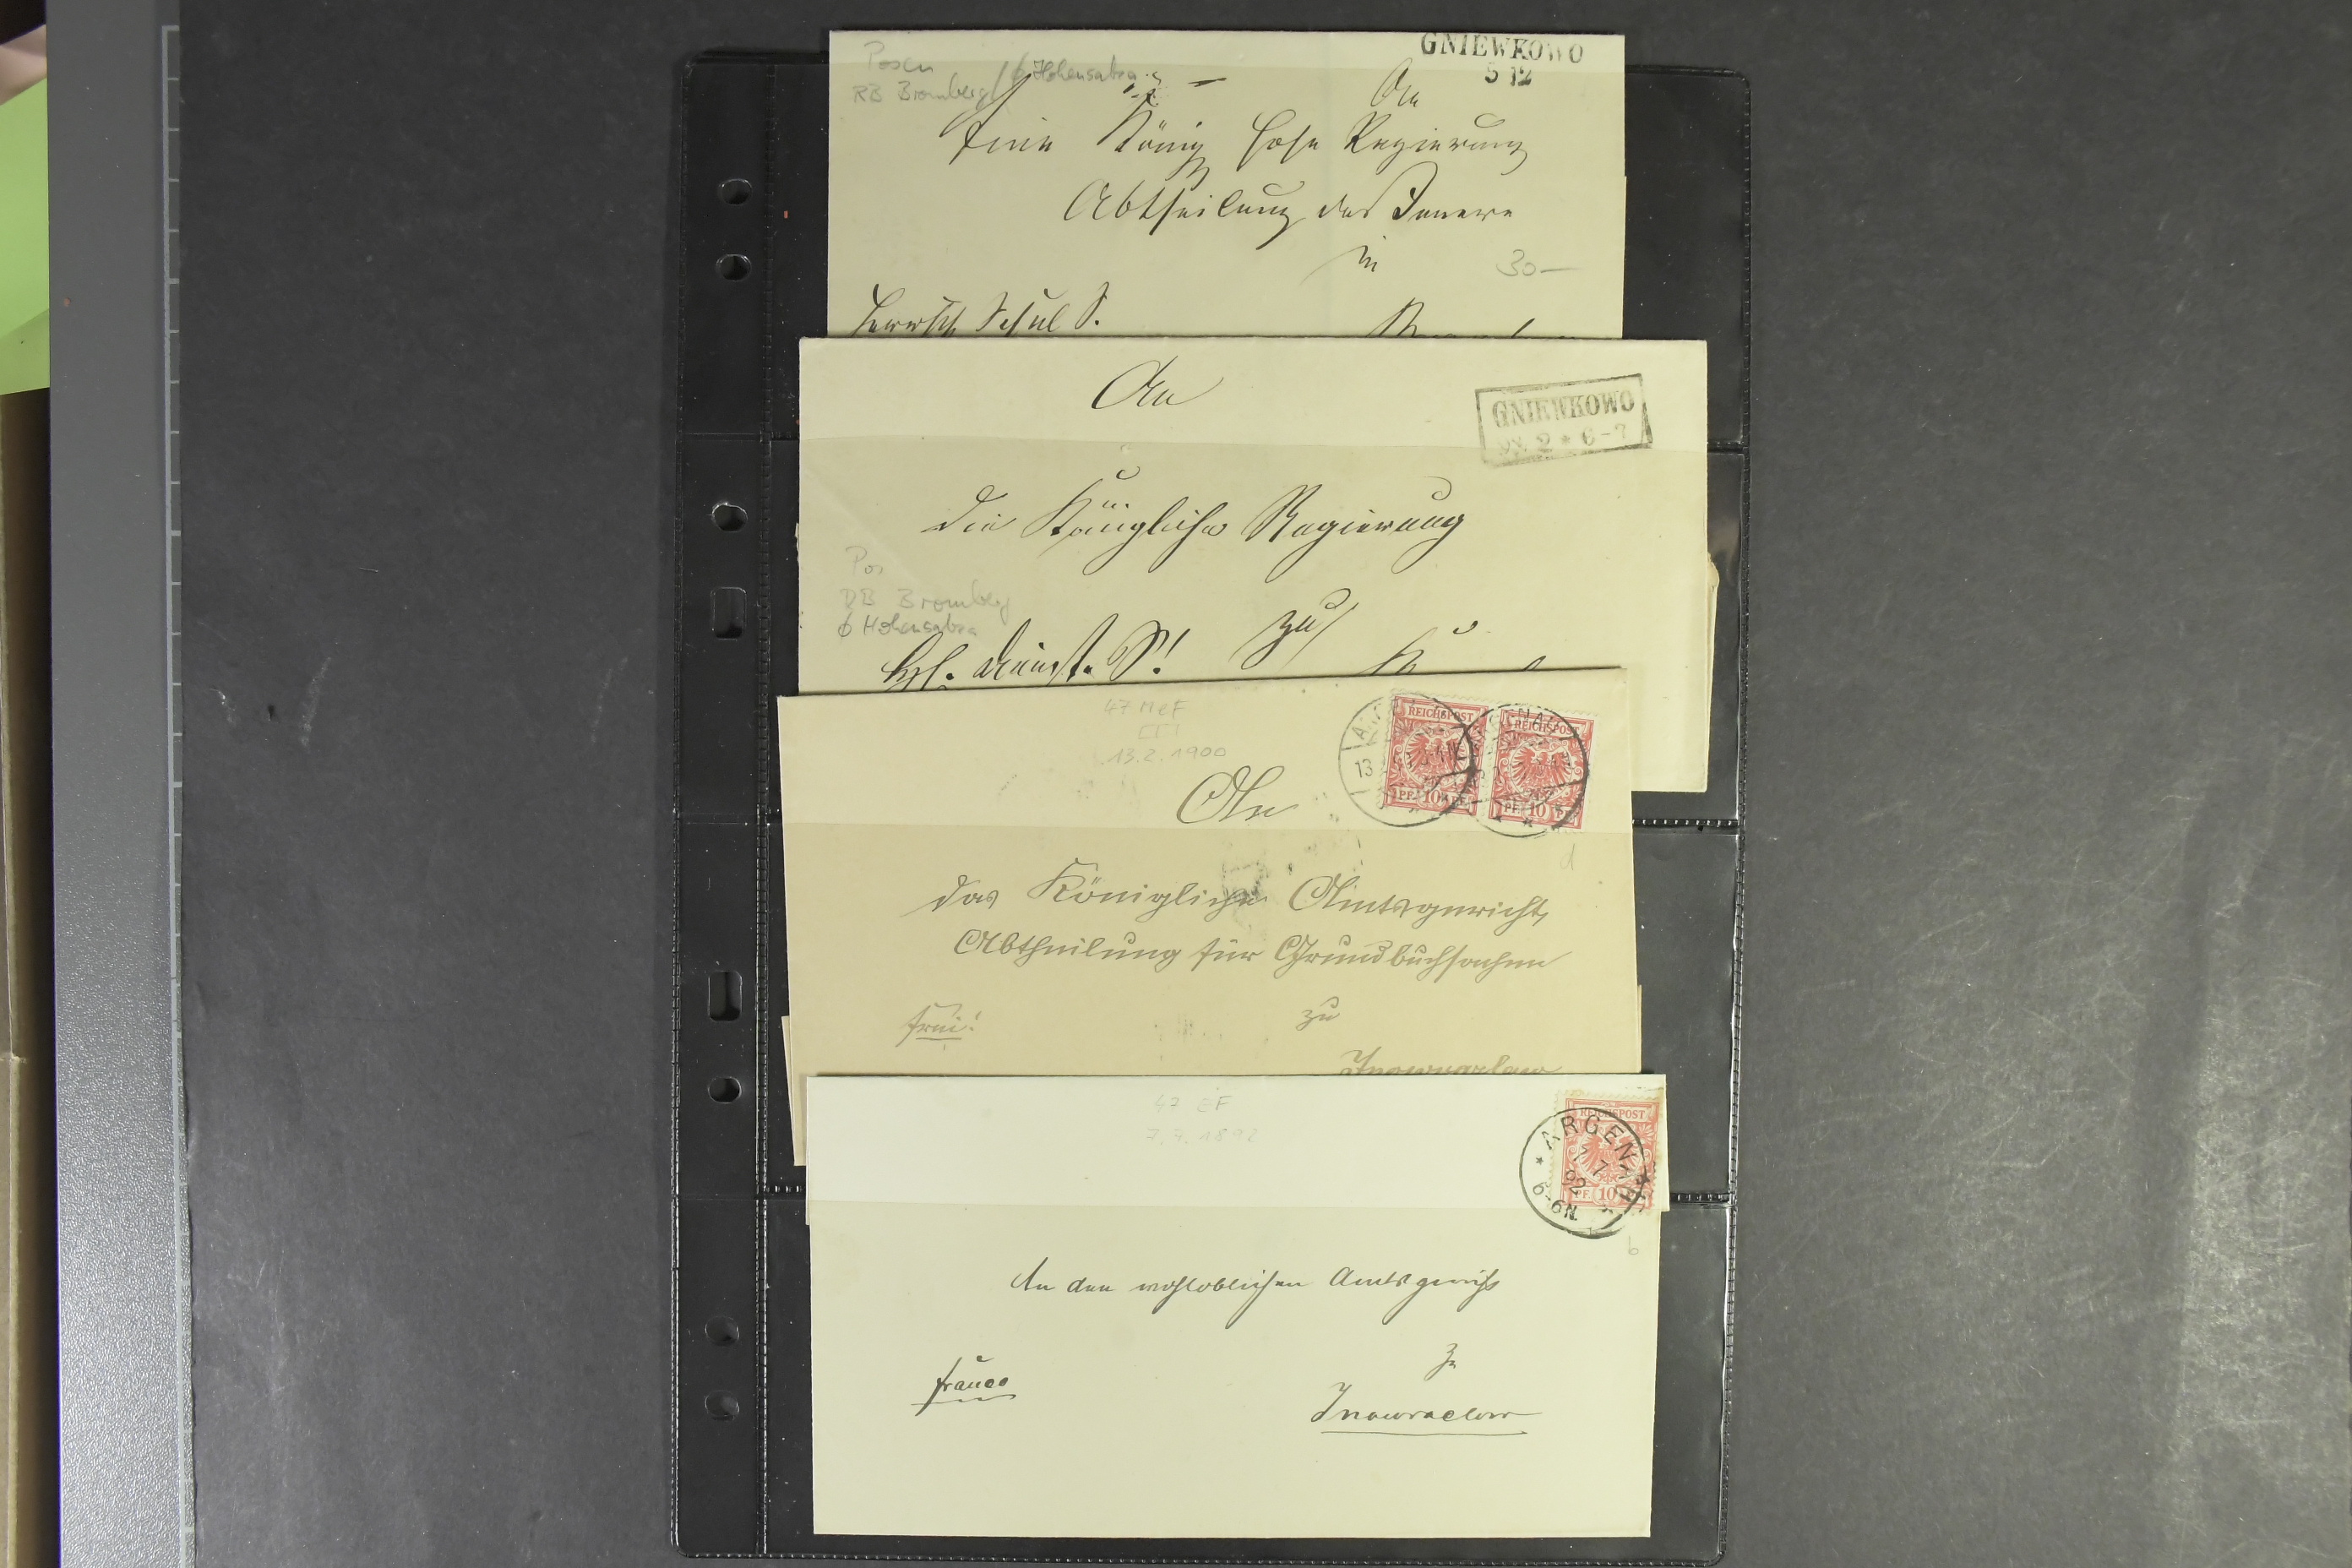 GNIEWKOWO
5 12
Posen
RB Bromberg / b Hohensalza
An
Eine König hohe Regierung
Abtheilung des Innern
in
30—
Herrsch. Schul S.
An
GNIEWKOWO
2 * 6-7
die Königliche Regierung
Pos
RB Bromberg
b Hohensalza
zu
Dienst. S!
47 MeF
13.2.1900
REICHSPOST
PF. 10 PF.
REICHSPOST
PF. 10 PF.
13
An
d
das Königliche Amtsgericht,
Abtheilung für Grundbuchsachen
frei!
zu
Inowrazlaw
47 EF
7.7.1892
REICHSPOST
PF. 10
ARGENAU
7 92
6-6N.
b
An den wohllöblichen Amtsgericht
zu
franco
Inowraclaw